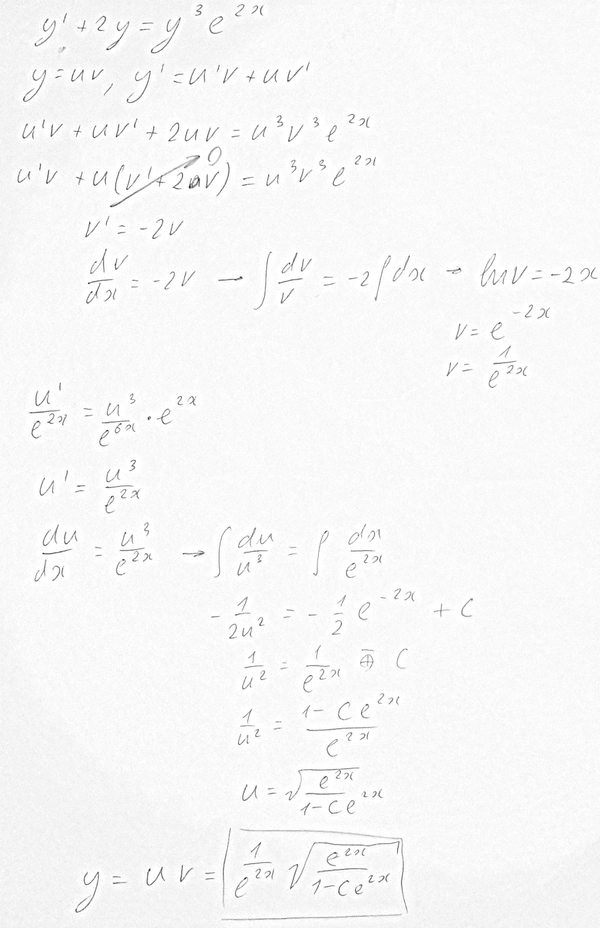 y' + 2y = y³e²ˣ
y = uv, y' = u'v + uv'
u'v + uv' + 2uv = u³v³e²ˣ
0
u'v + u(v' + 2v) = u³v³e²ˣ
v' = -2v
dv/dx = -2v → ∫ dv/v = -2∫dx → ln v = -2x
v = e⁻²ˣ
v = 1/e²ˣ
u'/e²ˣ = u³/e⁶ˣ · e²ˣ
u' = u³/e²ˣ
du/dx = u³/e²ˣ → ∫ du/u³ = ∫ dx/e²ˣ
- 1/2u² = - 1/2 e⁻²ˣ + C
1/u² = 1/e²ˣ ∓ C
1/u² = (1 - Ce²ˣ)/e²ˣ
u = √(e²ˣ/(1 - Ce²ˣ))
y = uv = 1/e²ˣ √(e²ˣ/(1 - Ce²ˣ))